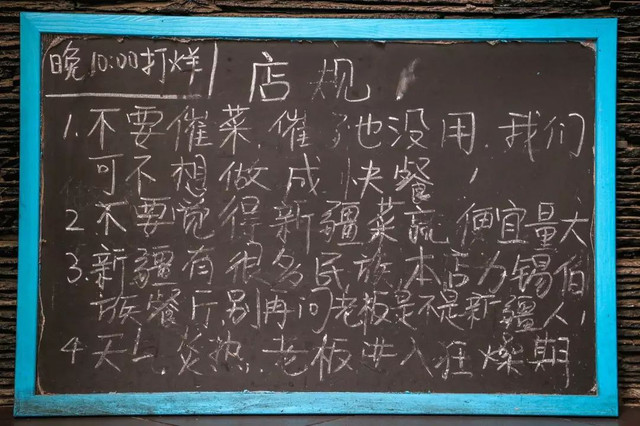 晚10:00打烊
店规
1.不要催菜.催了也没用.我们
可不想做成快餐
2不要觉得新疆菜就便宜量大
3.新疆有很多民族本店为锡伯
族餐厅,别再问老板是不是新疆人,
4天气炎热.老板进入狂燥期